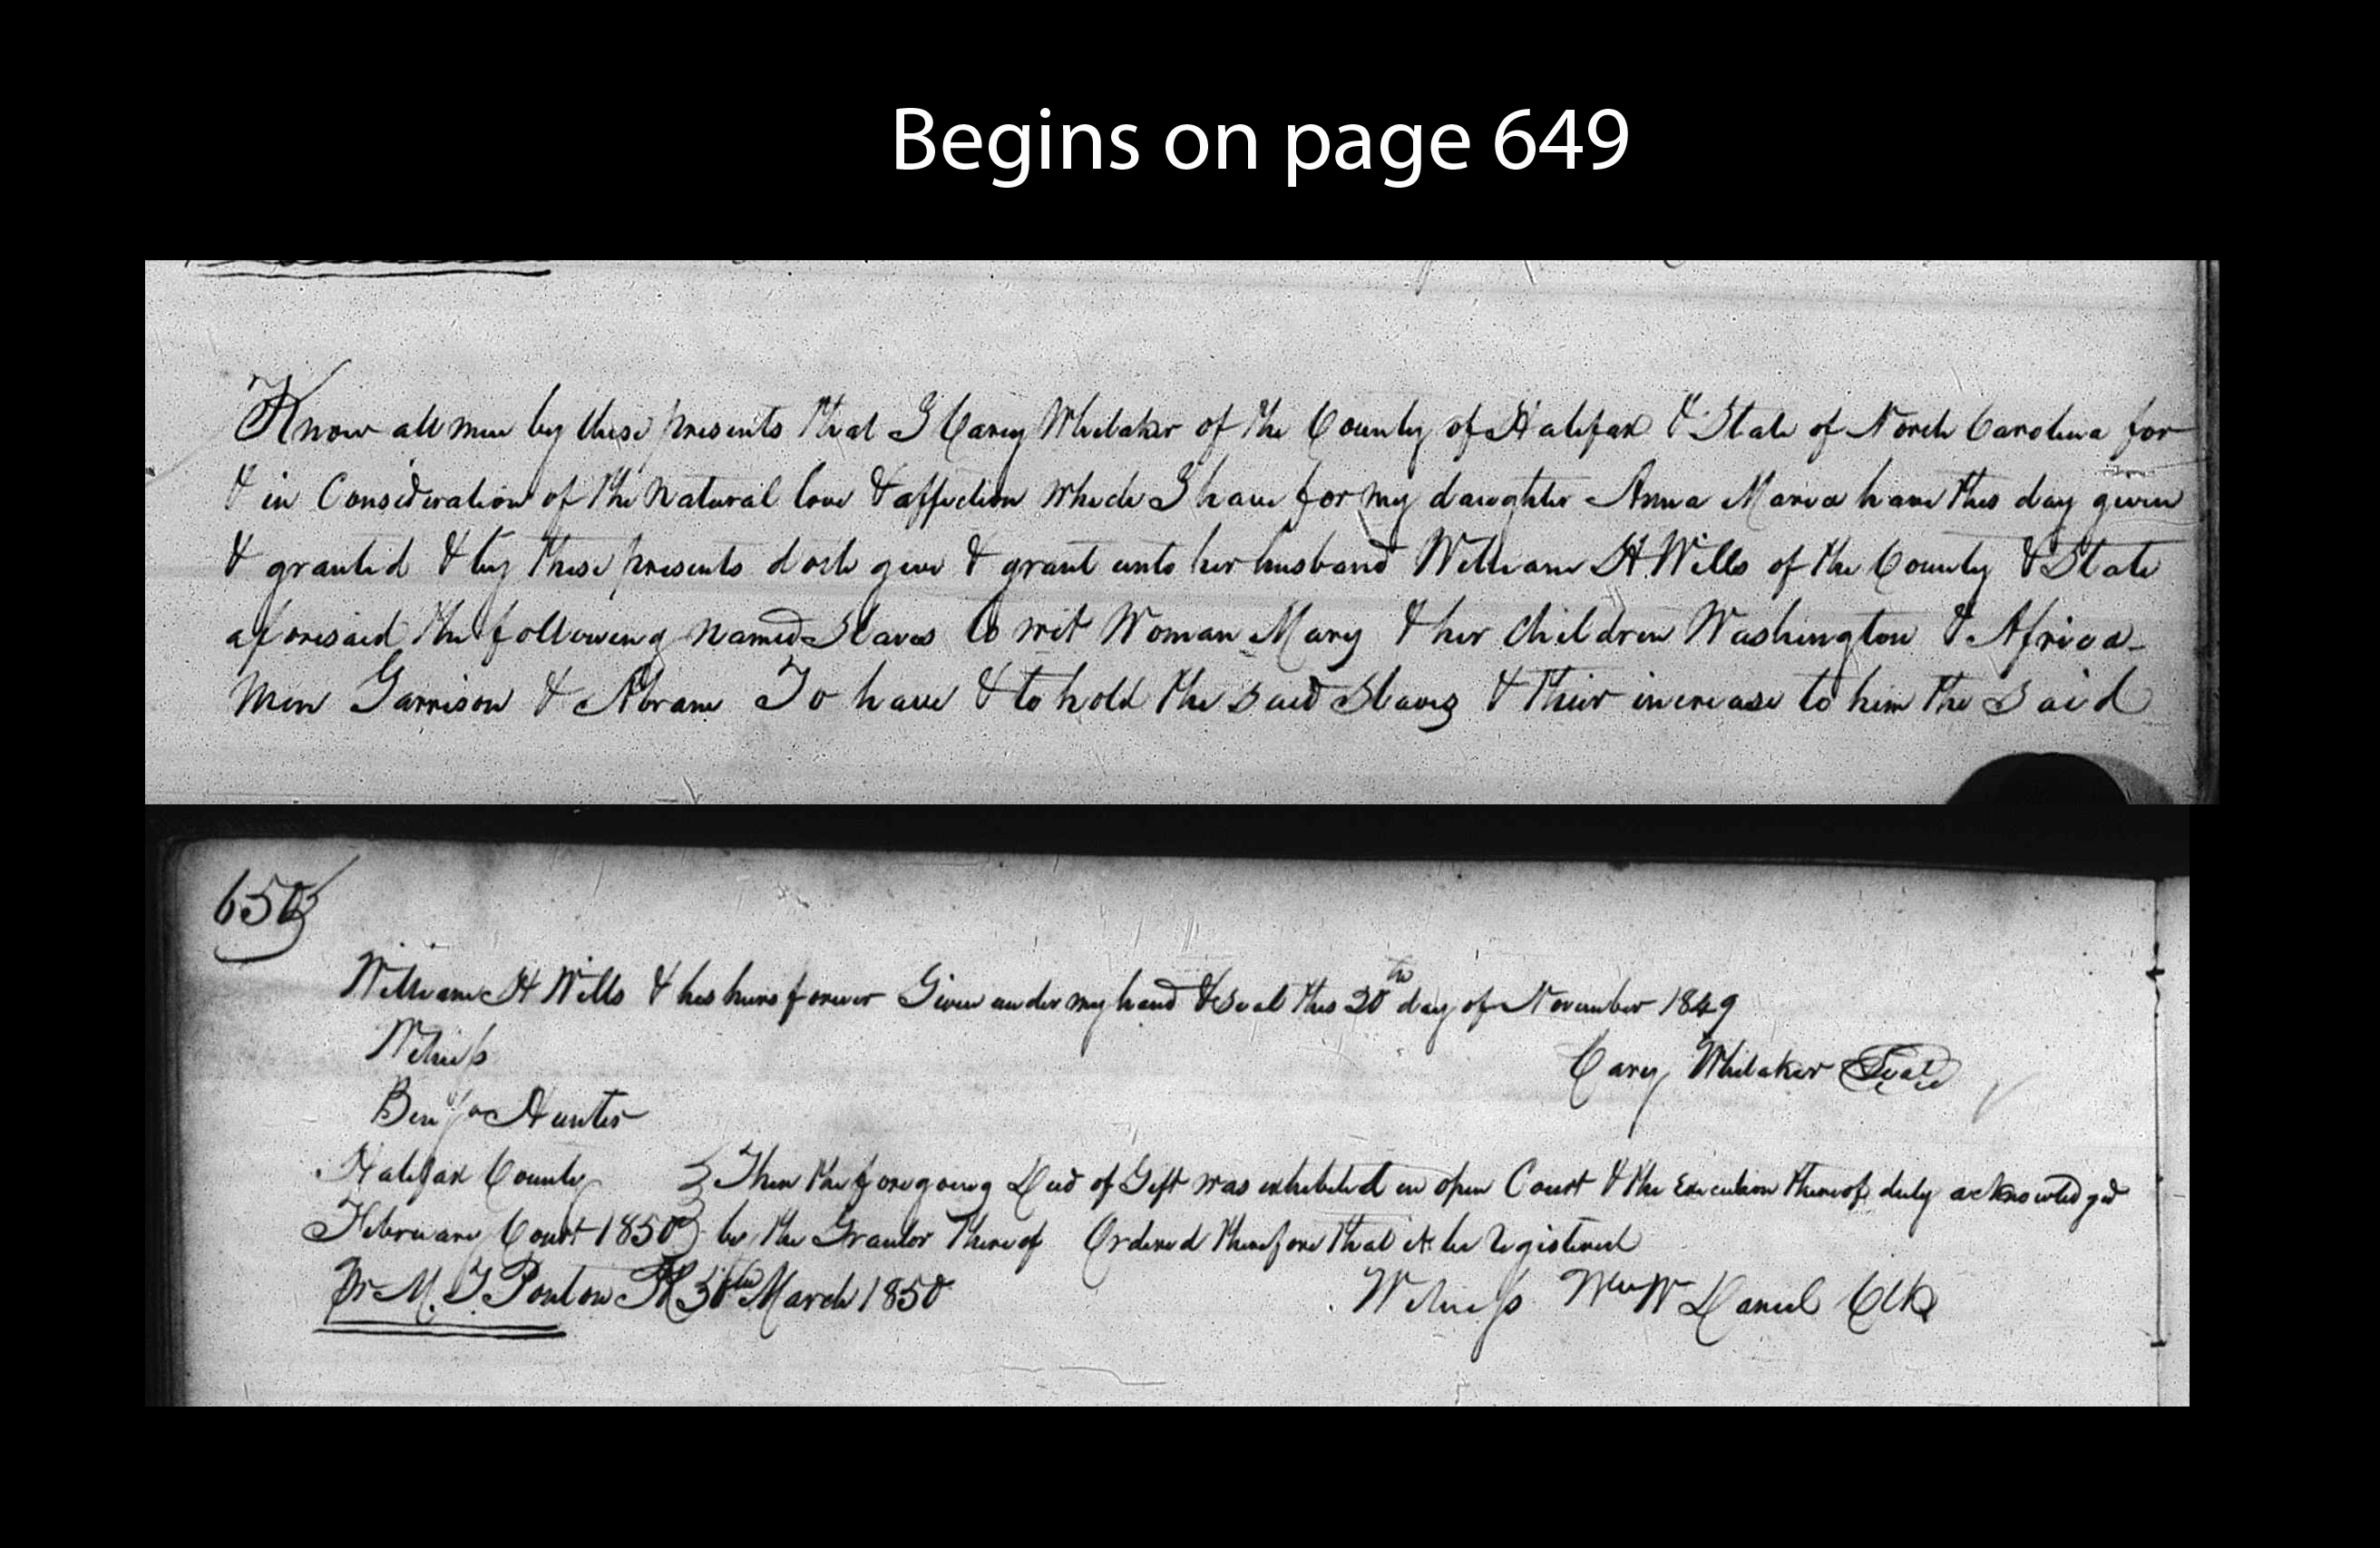 Begins on page 649
Know all men by these presents that I Cary Whitaker of the County of Halifax & State of North Carolina for
& in Consideration of the Natural love & affection which I have for my daughter Anna Maria have this day given
& granted & by these presents doth give & grant unto her husband William H. Wills of the County & State
aforesaid the following named Slaves to wit Woman Mary & her Children Washington & Africa-
Men Garrison & Abram To have & to hold the said Slaves & their increase to him the said
650
William H Wills & his heirs forever Given under my hand & seal this 20th day of November 1849
Witness
Cary Whitaker Seal
Benja Hunter
Halifax County } Then the foregoing Deed of Gift was exhibited in open Court & the Execution thereof duly acknowledged
February Court 1850 } by the Grantor thereof Ordered therefore that it be registered
Pr M. T Ponton PR 30th March 1850
Witness Wm W Daniel Clk